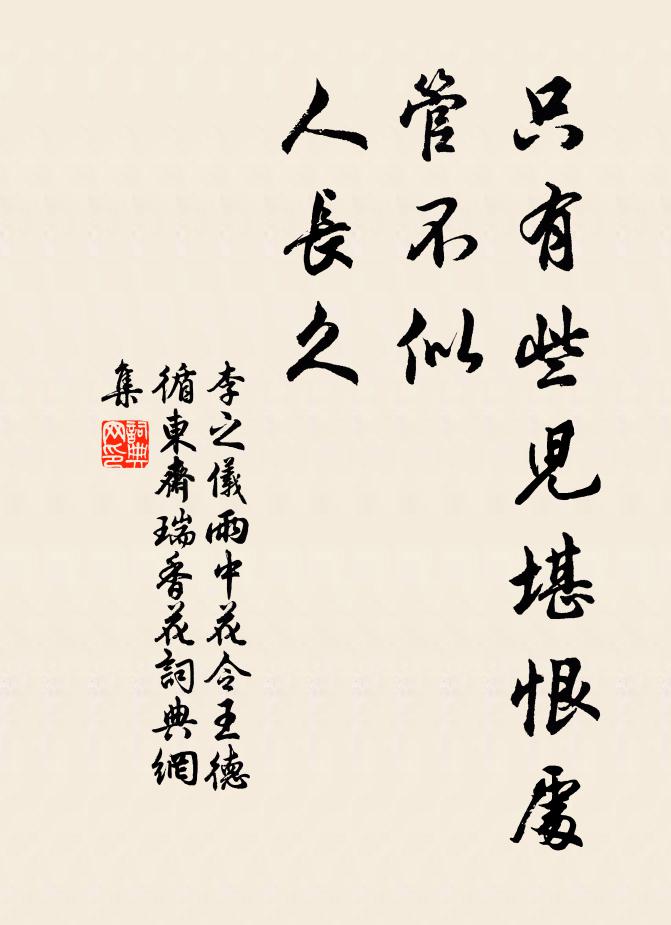 只有些兒堪恨處
管不似
人長久
李之儀雨中花令王德
循東齋瑞香花詞典網
集
詞典
网印